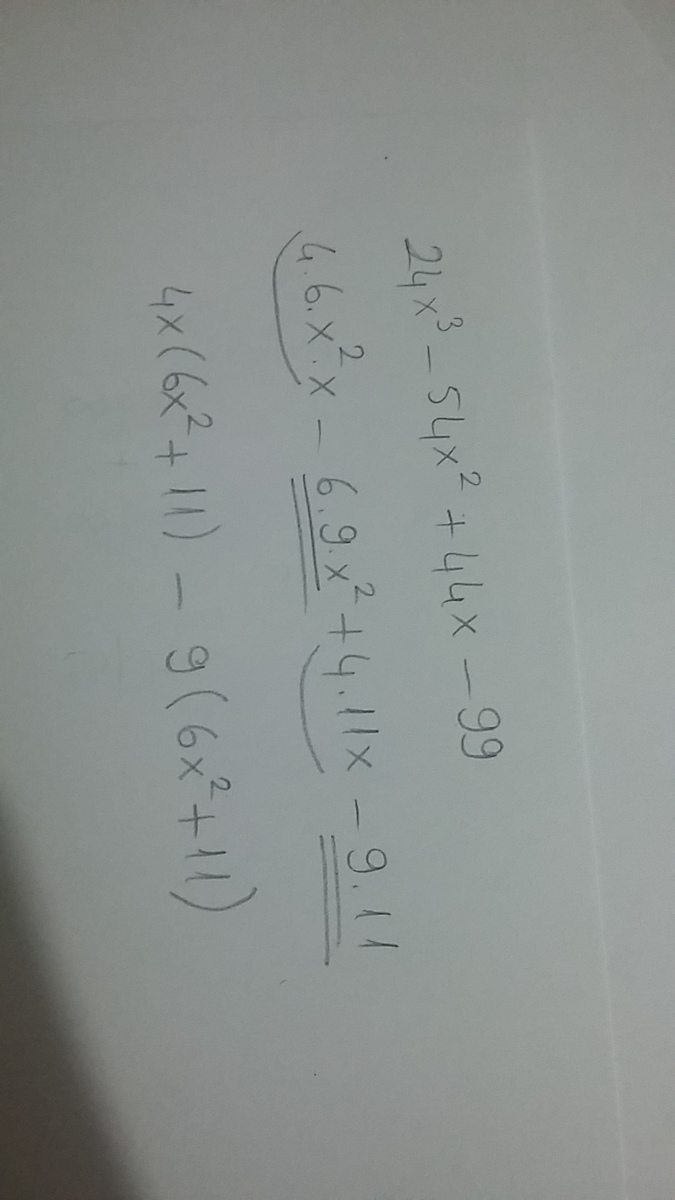 24x³ - 54x² + 44x - 99
4.6.x².x - 6.9.x² + 4.11x - 9.11
4x(6x² + 11) - 9(6x² + 11)